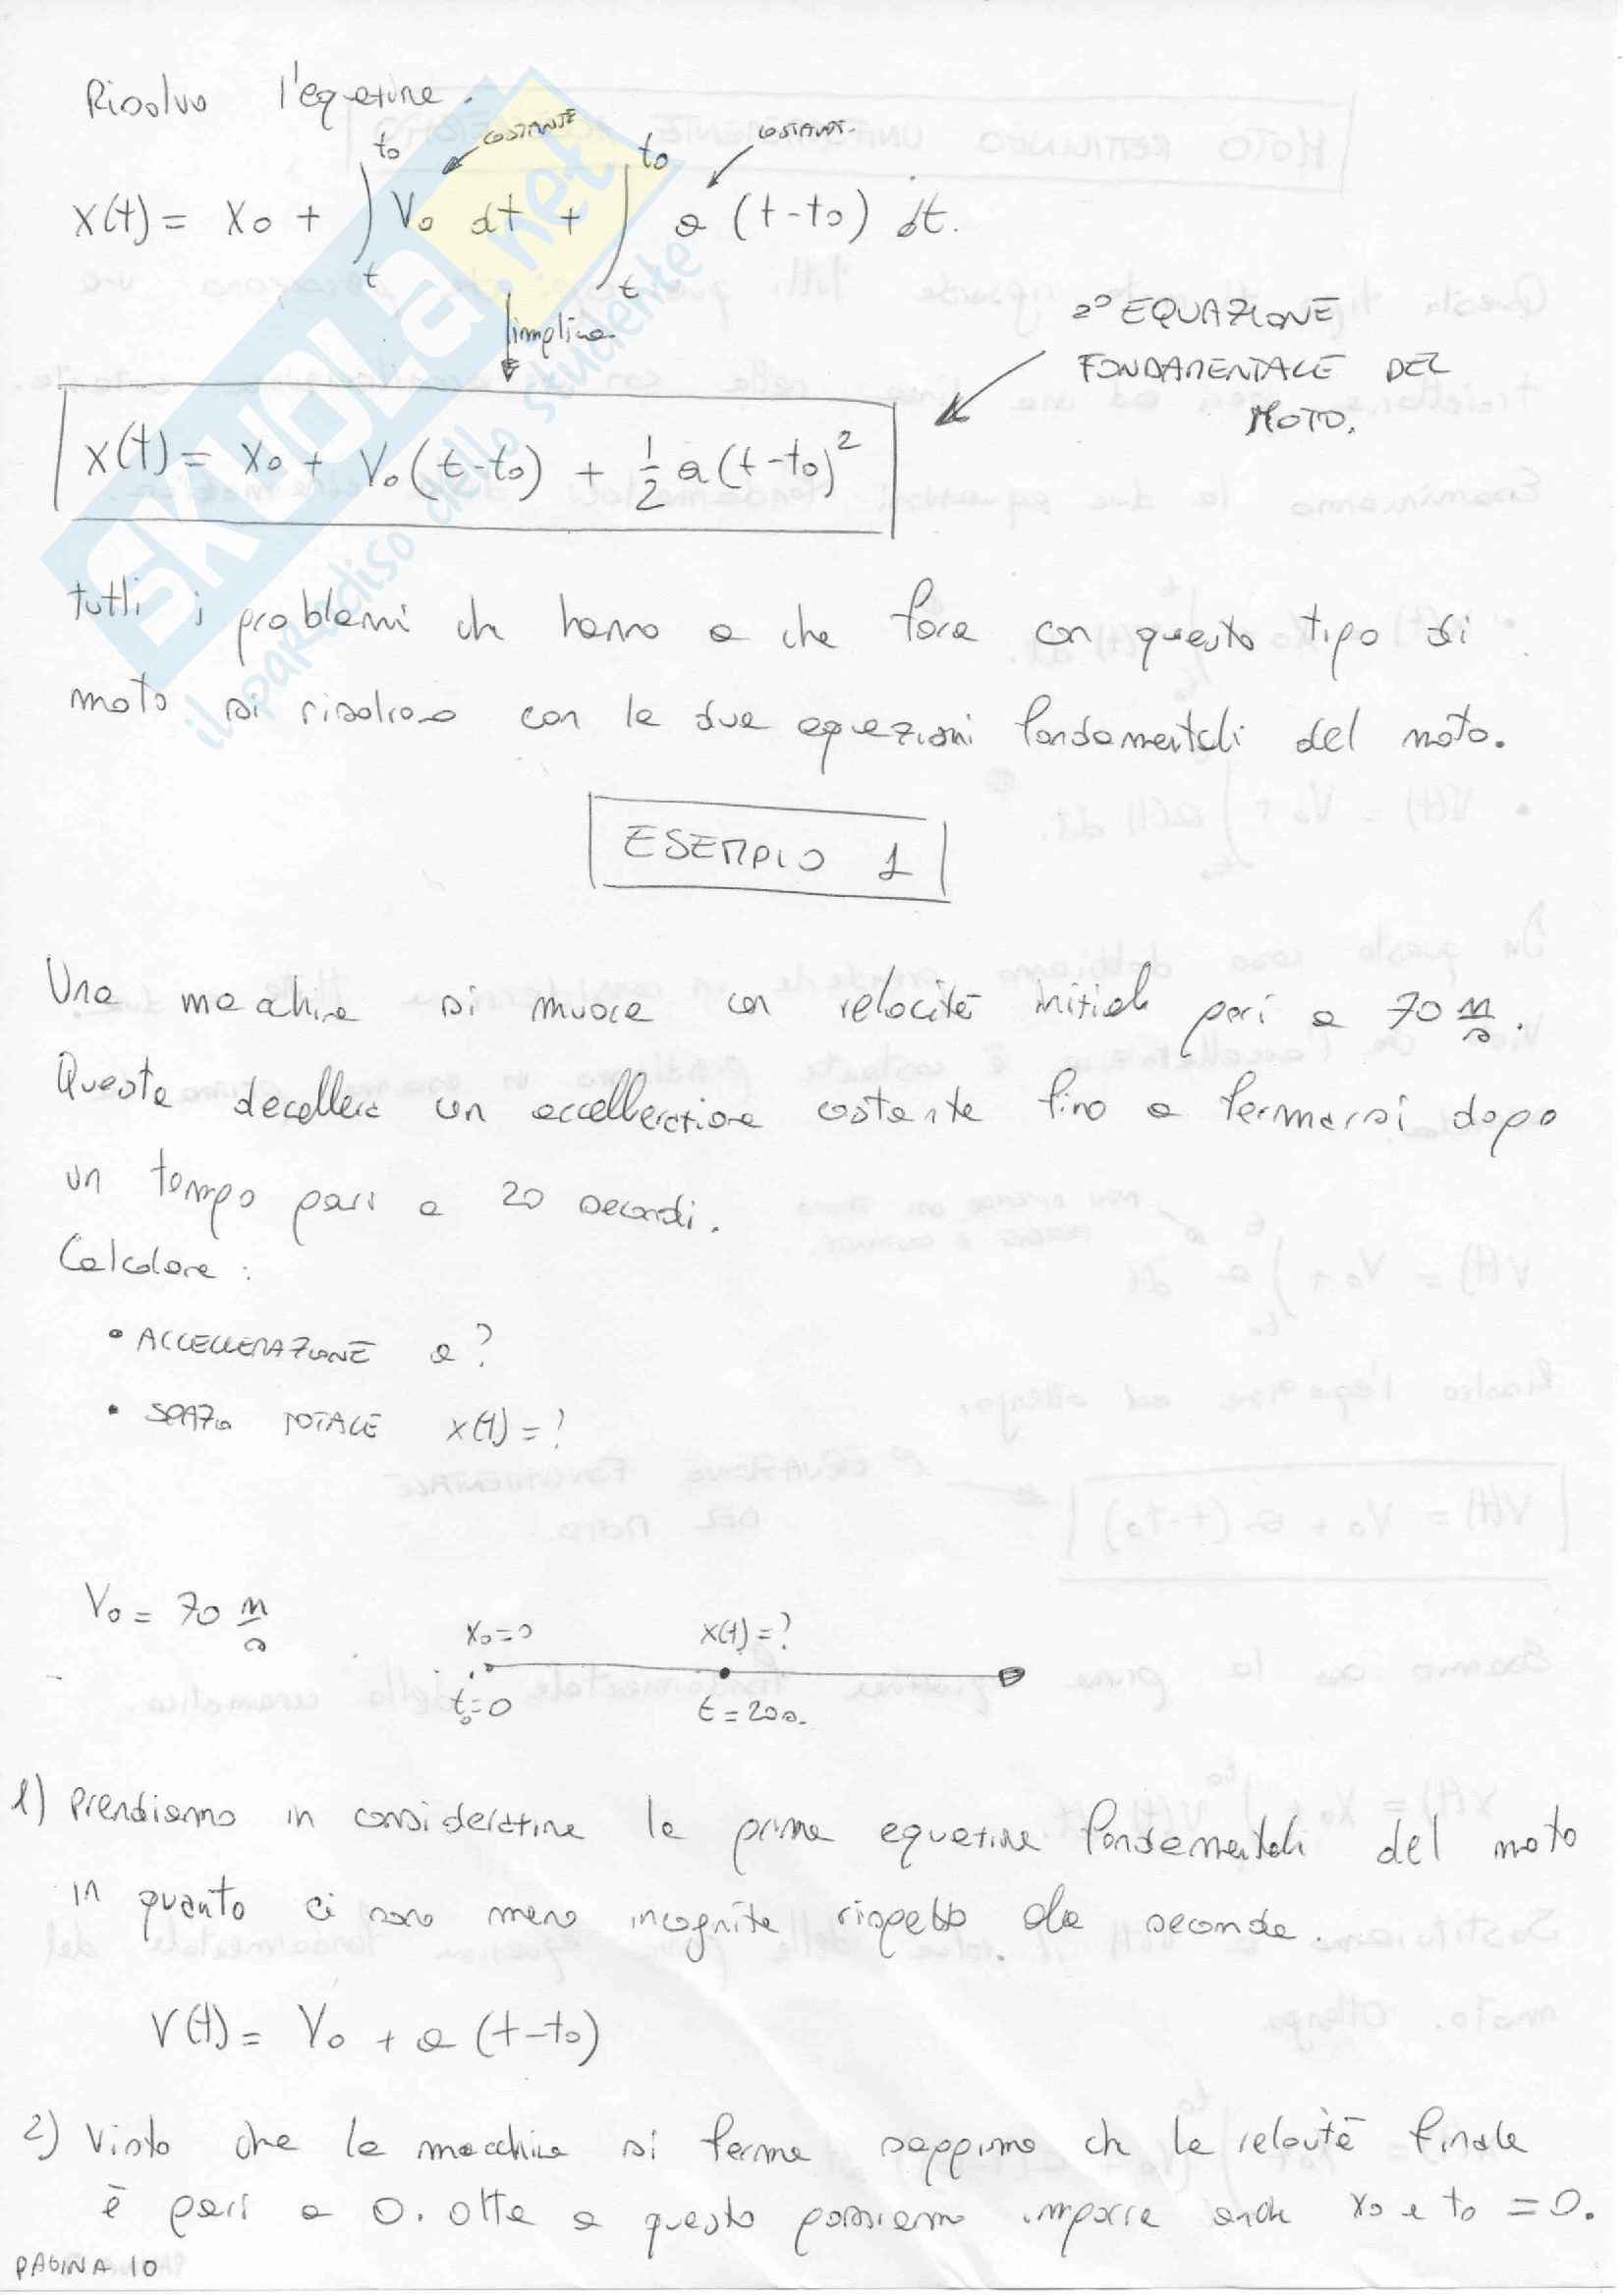 Risolvo l'equazione.
to COSTANTE to COSTANT.
x(t) = x0 + ∫ V0 dt + ∫ a (t-t0) dt.
t t
implica
2° EQUAZIONE
FONDAMENTALE DEL
MOTO.
x(t) = x0 + V0 (t-t0) + 1/2 a (t-t0)²
tutti i problemi che hanno a che fare con questo tipo di
moto si risolvono con le due equazioni fondamentali del moto.
ESEMPIO 1
Una macchina si muove con velocità iniziale pari a 70 m/s.
Questa decellera con accellerazione costante fino a fermarsi dopo
un tempo pari a 20 secondi.
Calcolare :
• ACCELLERAZIONE a ?
• SPAZIO TOTALE x(t) = ?
V0 = 70 m/s
x0=0 x(t)=?
t0=0 t=20s.
1) Prendiamo in considerazione la prima equazione fondamentale del moto
in quanto ci sono meno incognite rispetto alla seconda.
V(t) = V0 + a (t-t0)
2) Visto che la macchina si ferma sappiamo che la velocità finale
è pari a 0. oltre a questo possiamo imporre anche x0 e t0 = 0.
PAGINA 10
SKUOLA.net
il paradiso dello studente